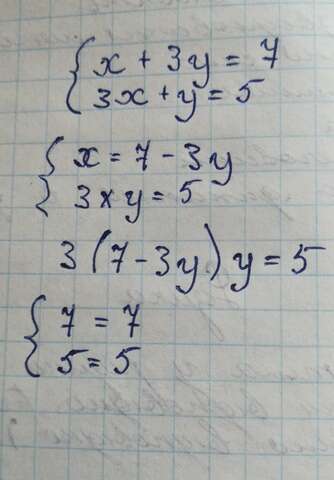 x + 3y = 7
3x + y = 5
x = 7 - 3y
3xy = 5
3(7 - 3y)y = 5
7 = 7
5 = 5